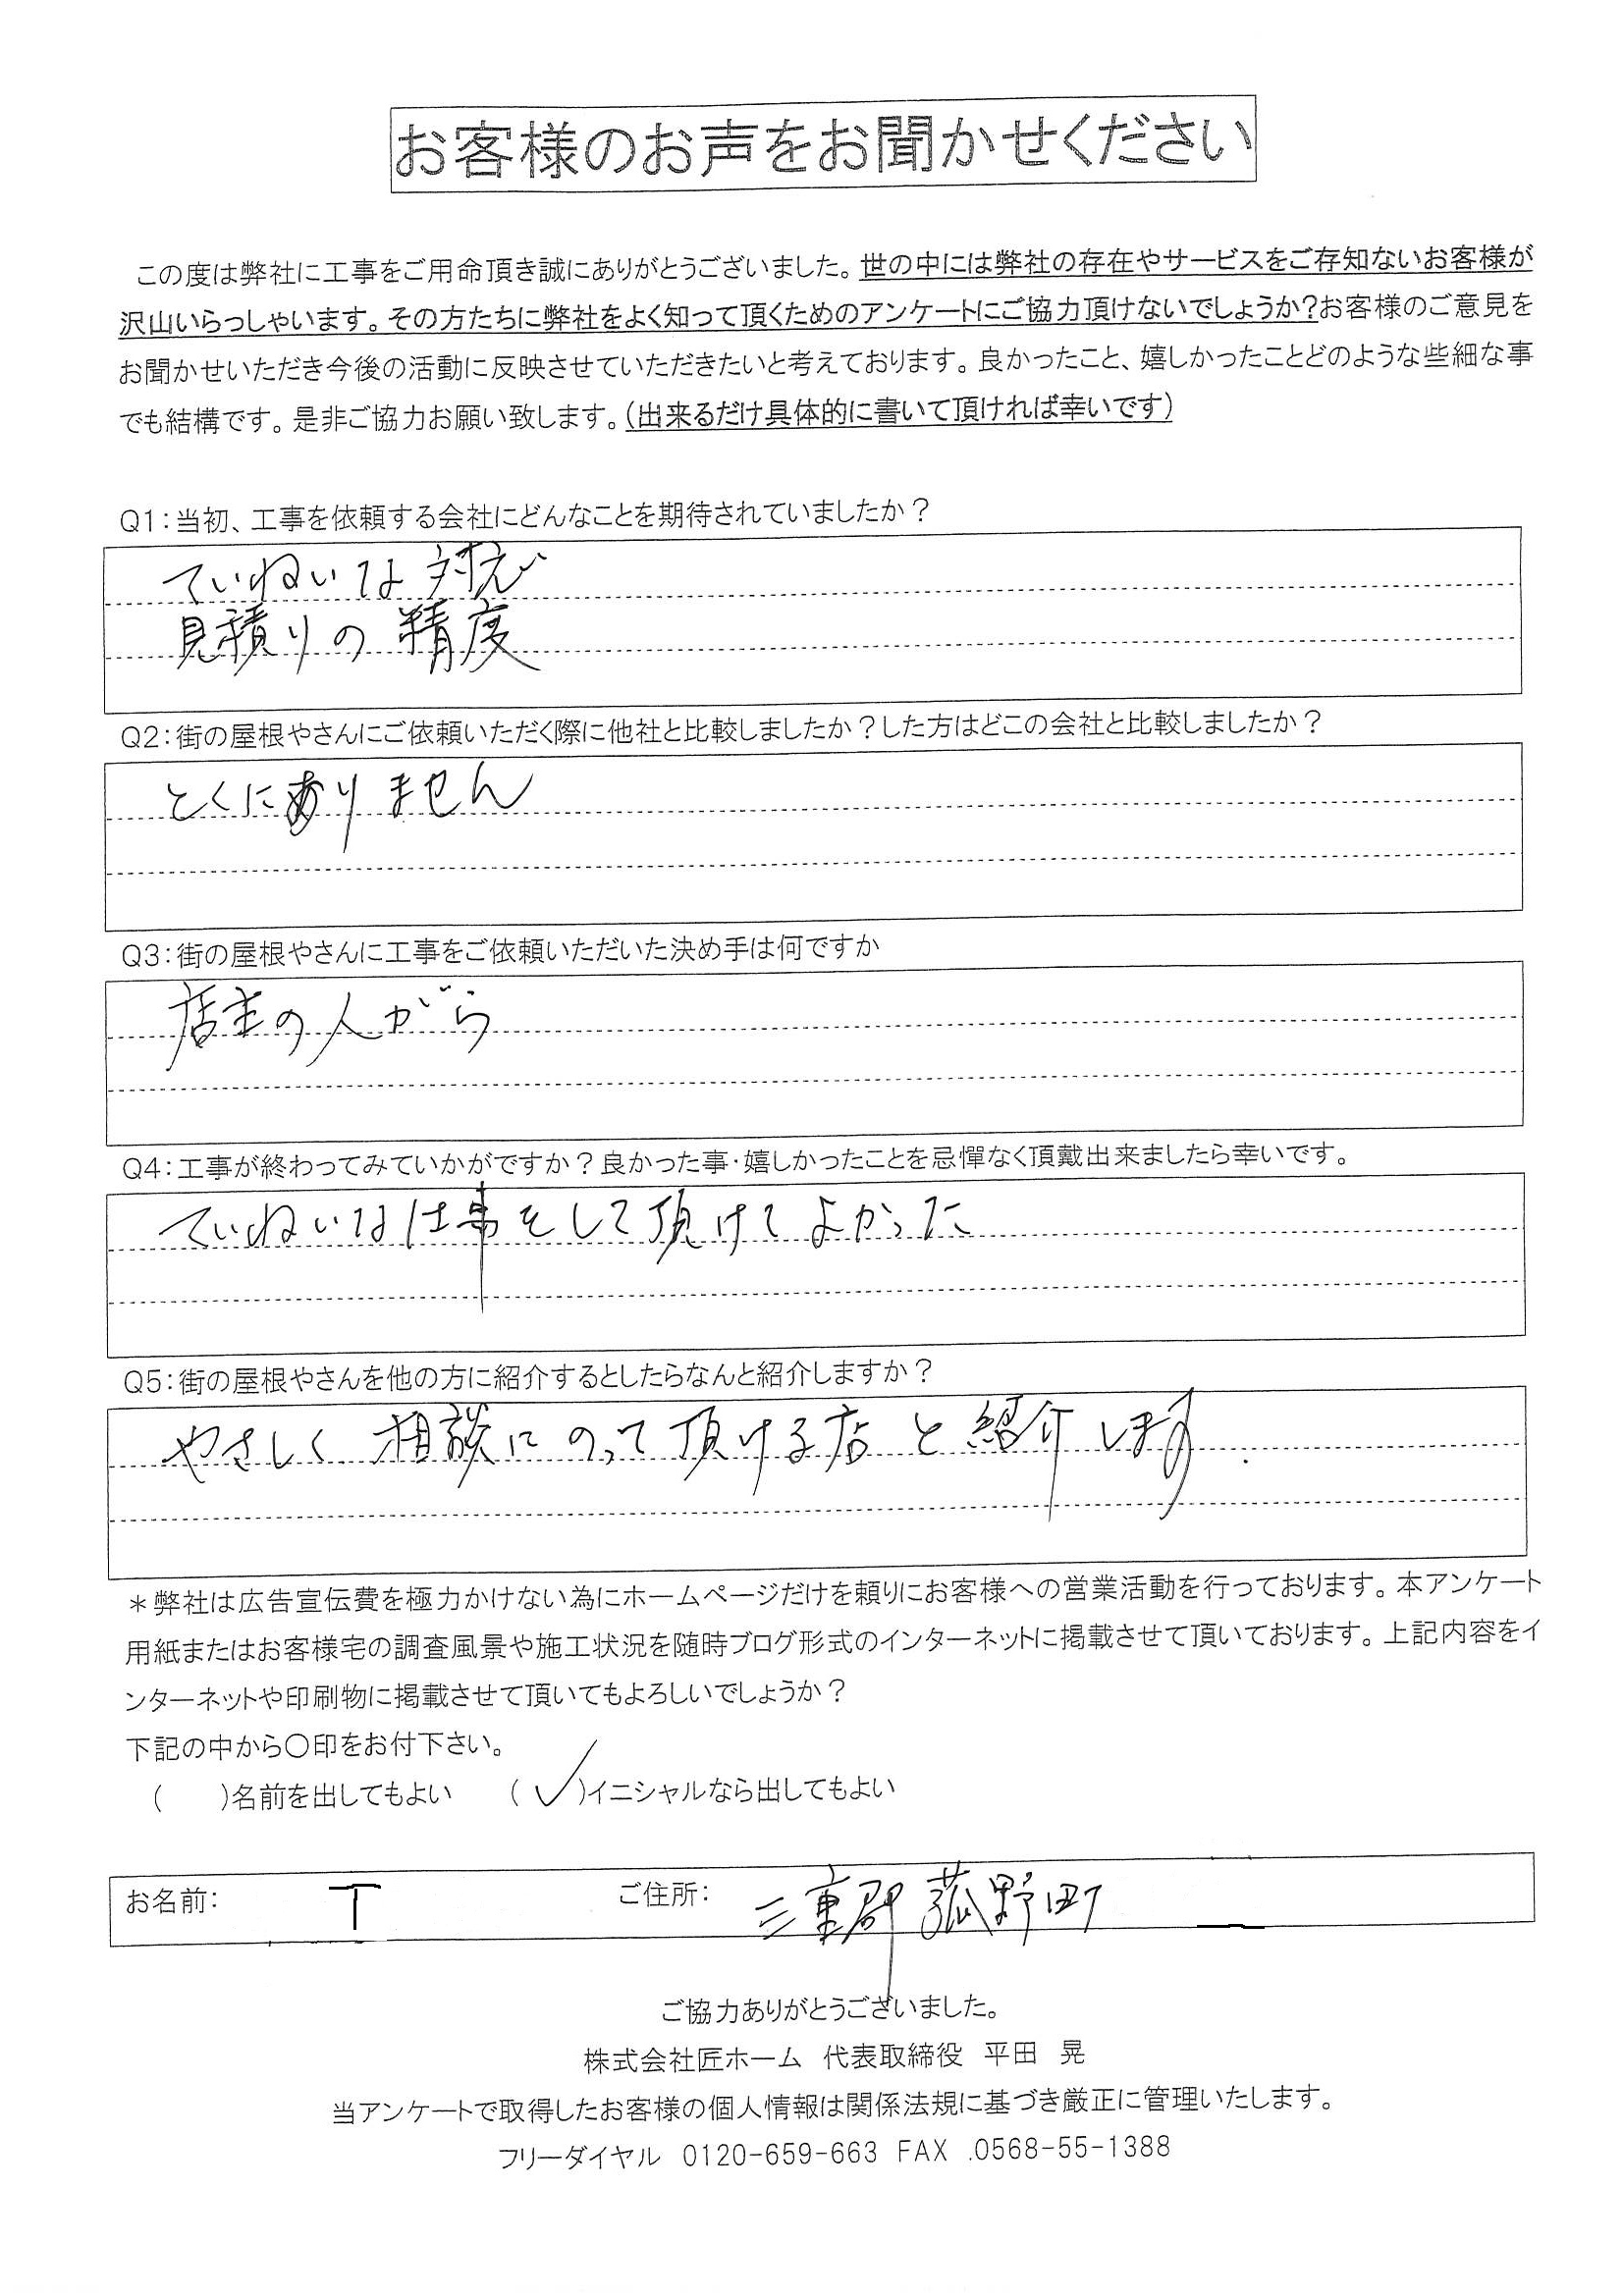 お客様のお声をお聞かせください
この度は弊社に工事をご用命頂き誠にありがとうございました。世の中には弊社の存在やサービスをご存知ないお客様が
沢山いらっしゃいます。その方たちに弊社をよく知って頂くためのアンケートにご協力頂けないでしょうか?お客様のご意見を
お聞かせいただき今後の活動に反映させていただきたいと考えております。良かったこと、嬉しかったことどのような些細な事
でも結構です。是非ご協力お願い致します。(出来るだけ具体的に書いて頂ければ幸いです)
Q1:当初、工事を依頼する会社にどんなことを期待されていましたか?
ていねいな対応
見積りの精度
Q2:街の屋根やさんにご依頼いただく際に他社と比較しましたか?した方はどこの会社と比較しましたか?
とくにありません
Q3:街の屋根やさんに工事をご依頼いただいた決め手は何ですか
店主の人がら
Q4:工事が終わってみていかがですか?良かった事・嬉しかったことを忌憚なく頂戴出来ましたら幸いです。
ていねいな仕事をして頂けてよかった
Q5:街の屋根やさんを他の方に紹介するとしたらなんと紹介しますか?
やさしく相談にのって頂ける店と紹介します.
*弊社は広告宣伝費を極力かけない為にホームページだけを頼りにお客様への営業活動を行っております。本アンケート
用紙またはお客様宅の調査風景や施工状況を随時ブログ形式のインターネットに掲載させて頂いております。上記内容をイ
ンターネットや印刷物に掲載させて頂いてもよろしいでしょうか?
下記の中から〇印をお付下さい。
(　　)名前を出してもよい　(✓)イニシャルなら出してもよい
お名前: T　ご住所: 三重郡菰野町
ご協力ありがとうございました。
株式会社匠ホーム 代表取締役 平田 晃
当アンケートで取得したお客様の個人情報は関係法規に基づき厳正に管理いたします。
フリーダイヤル 0120-659-663 FAX .0568-55-1388